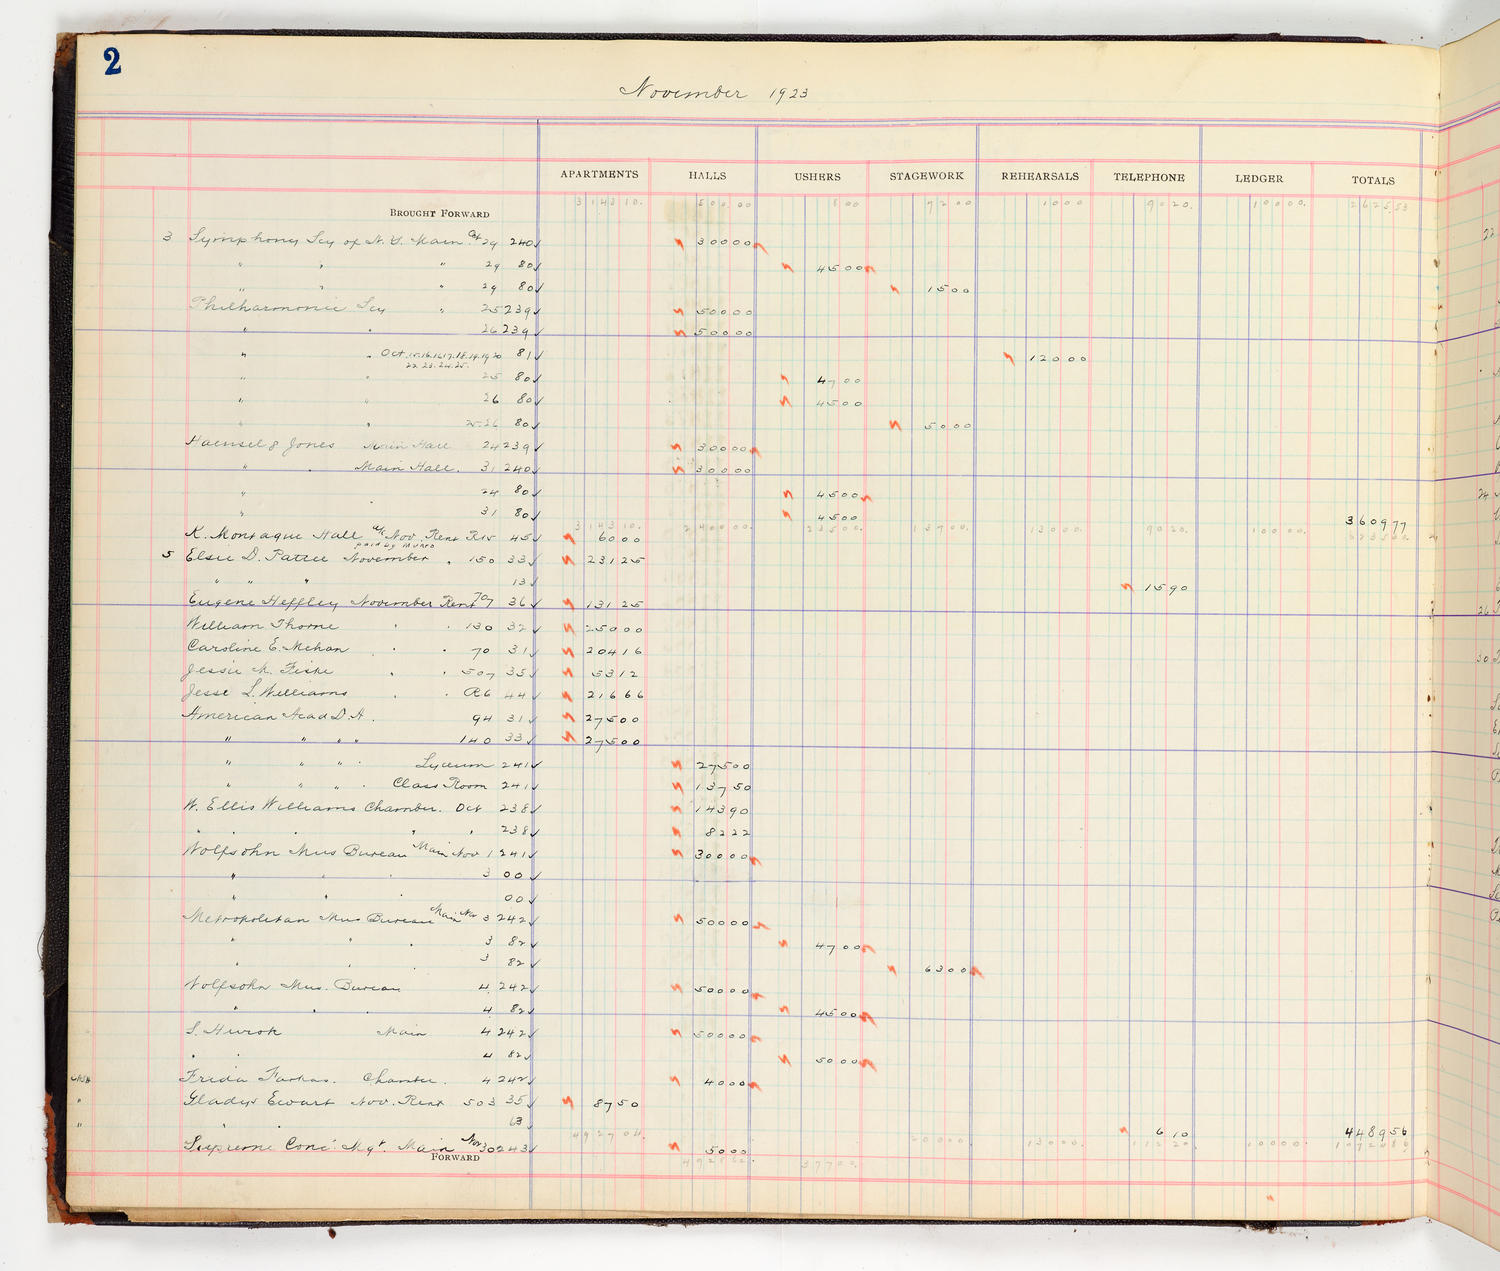 2
November 1923
APARTMENTS HALLS USHERS STAGEWORK REHEARSALS TELEPHONE LEDGER TOTALS
BROUGHT FORWARD 31431 0. 500.00 8 00 92 00 10 00 90 20. 100 00. 2625.53
3 Symphony Scy of N.Y. Main Oct 29 240 ✓ 300 00
" " " 29 80 ✓ 45 00
" " " 29 80 ✓ 15 00
Philharmonic Scy " 25 239 ✓ 500 00
" " 26 239 ✓ 500 00
" " Oct. 81 ✓ 120 00
22.23.24.25.
" " 25 80 ✓ 47 00
" " 26 80 ✓ 45 00
" " 25-26 80 ✓ 50 00
Haensel & Jones Main Hall 24 239 ✓ 300 00
" " Main Hall. 31 240 ✓ 300 00
" 24 80 ✓ 45 00
" 31 80 ✓ 45 00
3609 77
K. Montague Hall a/c Nov. Rent 45 ✓ 60 00
paid by Munro
5 Elsie D. Pattee November " 150 33 ✓ 231 25
" " " 13 ✓ 15 90
Eugene Heffley November Rent 709 36 ✓ 131 25
William Thorne " " 130 32 ✓ 250 00
Caroline E. Mehan " " 70 31 ✓ 204 16
Jessie M. Fiske " " 507 35 ✓ 53 12
Jesse L. Williams " " 44 ✓ 216 66
American Acad D.A. 94 31 ✓ 275 00
" " " " 140 33 ✓ 275 00
" " " " Lyceum 241 ✓ 275 00
" " " " Class Room 241 ✓ 137 50
W. Ellis Williams Chamber. Oct 238 ✓ 143 90
" " " " " 238 ✓ 82 22
Wolfsohn Mus Bureau Main Nov 1 241 ✓ 300 00
" " " 3 00 ✓
" " " 00 ✓
Metropolitan Mus Bureau Main Nov 3 242 ✓ 500 00
" " " 3 82 ✓ 47 00
" " " 3 82 ✓ 63 00
Wolfsohn Mus. Bureau 4 242 ✓ 500 00
" " " 4 82 ✓ 45 00
S. Hurok Main 4 242 ✓ 500 00
" " 4 82 ✓ 50 00
Cash Frida Farkas. Chamber. 4 242 ✓ 40 00
" Gladys Ewart Nov. Rent 503 35 ✓ 87 50
" " " 13 ✓ 6 10
4489 56
Supreme Conc. Mgt. Main Nov 30 243 ✓ 50 00
FORWARD